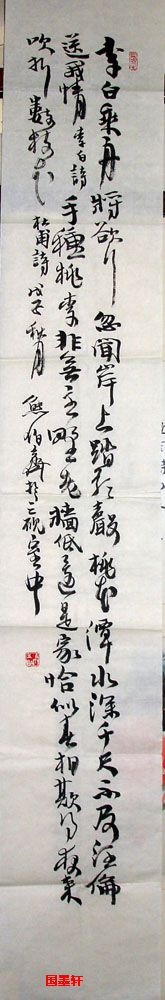 李白乘舟将欲行忽闻岸上踏歌声桃花潭水深千尺不及汪伦
送我情 李白诗 手种桃李非无主野老墙低还是家恰似春相欺得夜来
吹折数枝花 杜甫诗 戊子秋月 熊伯齐于三砚室中
国墨轩